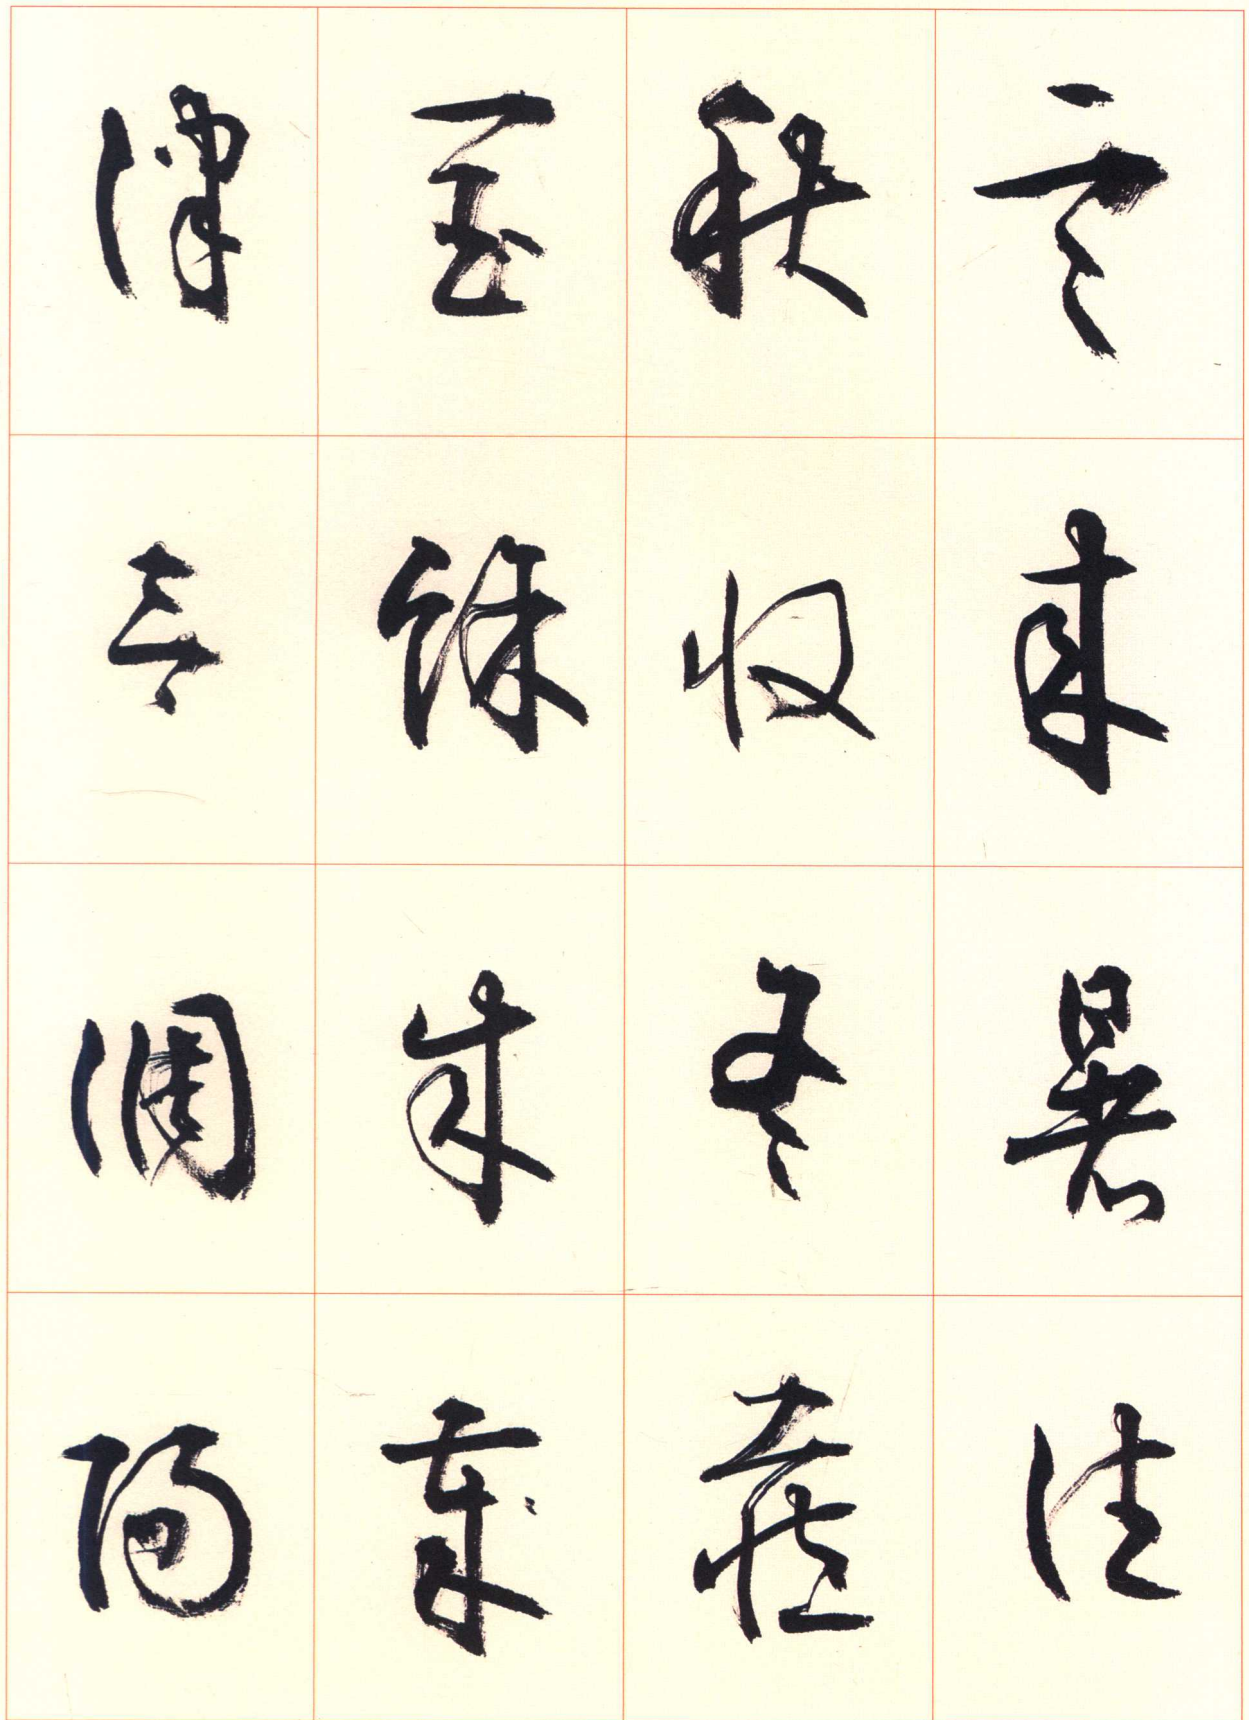 寒來暑往
秋收冬藏
閏餘成歲
律呂調陽